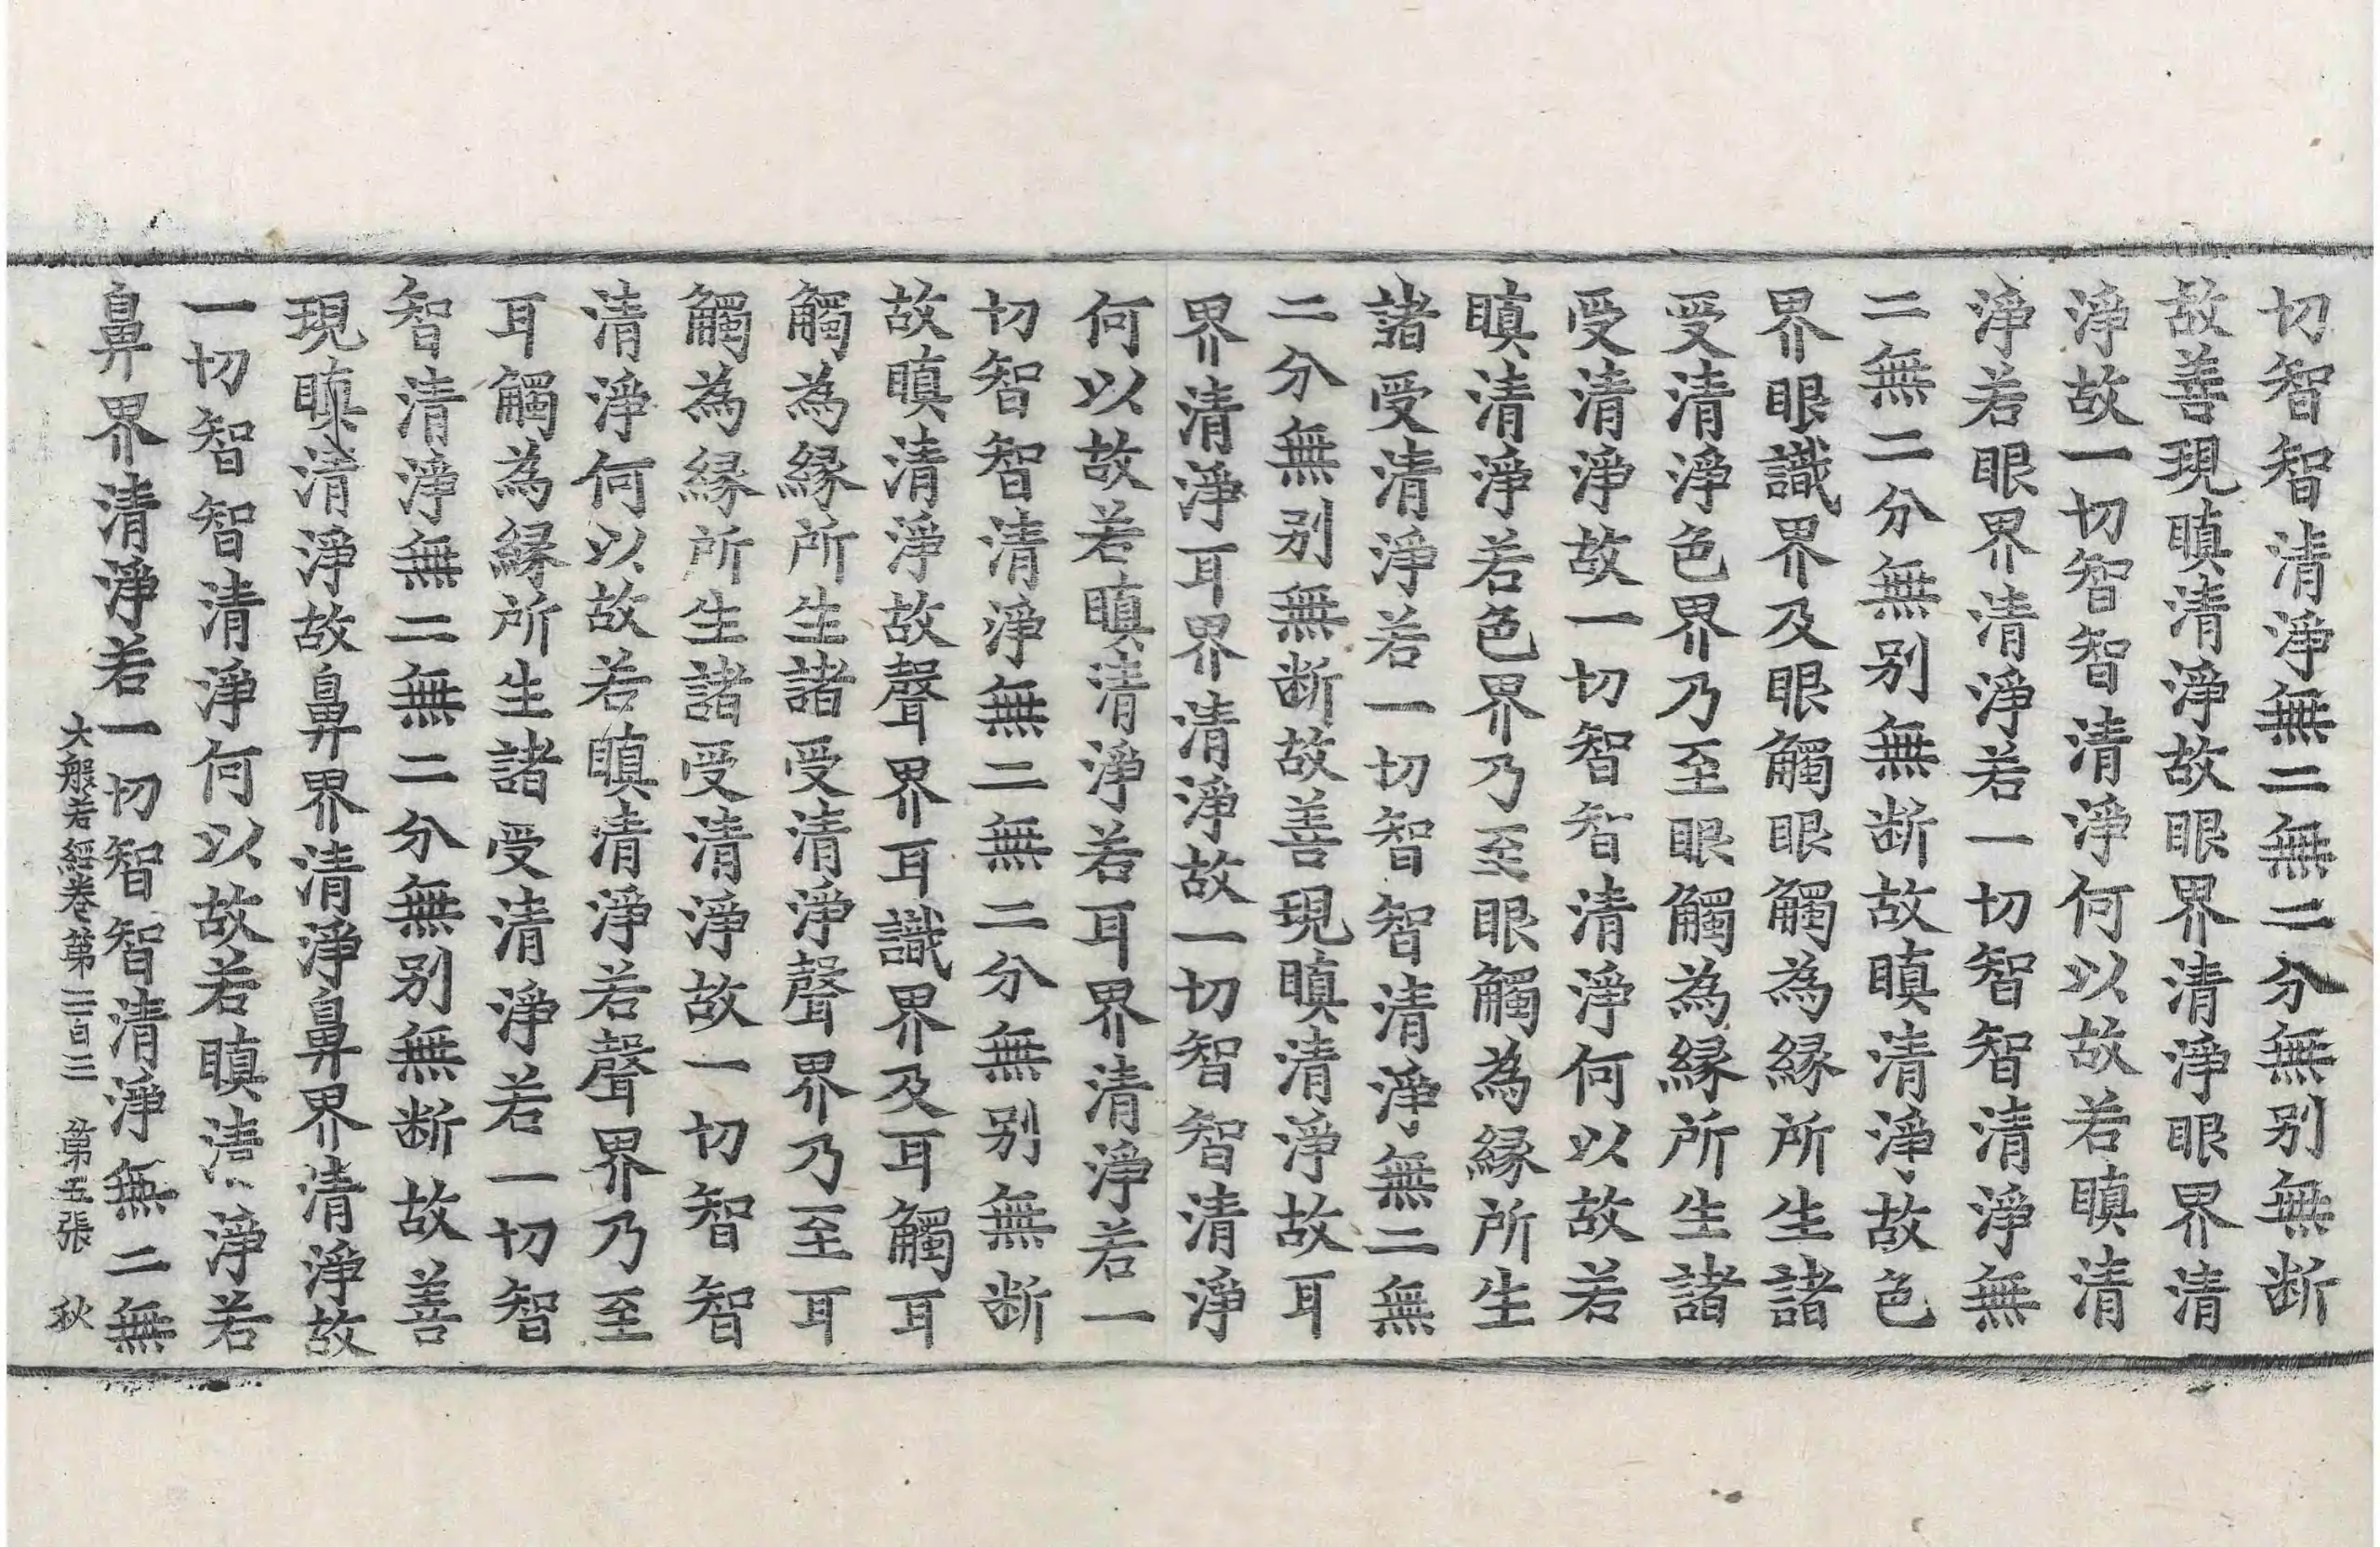 切智智清淨無二無二分無別無断
故善現瞋清淨故眼界清淨眼界清
淨故一切智智清淨何以故若瞋清
淨若眼界清淨若一切智智清淨無
二無二分無別無断故瞋清淨故色
界眼識界及眼觸眼觸為縁所生諸
受清淨色界乃至眼觸為縁所生諸
受清淨故一切智智清淨何以故若
瞋清淨若色界乃至眼觸為縁所生
諸受清淨若一切智智清淨無二無
二分無别無断故善現瞋清淨故耳
界清淨耳界清淨故一切智智清淨
何以故若瞋清淨若耳界清淨若一
切智智清淨無二無二分無别無断
故瞋清淨故聲界耳識界及耳觸耳
觸為縁所生諸受清淨聲界乃至耳
觸為縁所生諸受清淨故一切智智
清淨何以故若瞋清淨若聲界乃至
耳觸為縁所生諸受清淨若一切智
智清淨無二無二分無别無断故善
現瞋清淨故鼻界清淨鼻界清淨故
一切智智清淨何以故若瞋清淨若
鼻界清淨若一切智智清淨無二無
大般若經卷第二百三 第五張 秋